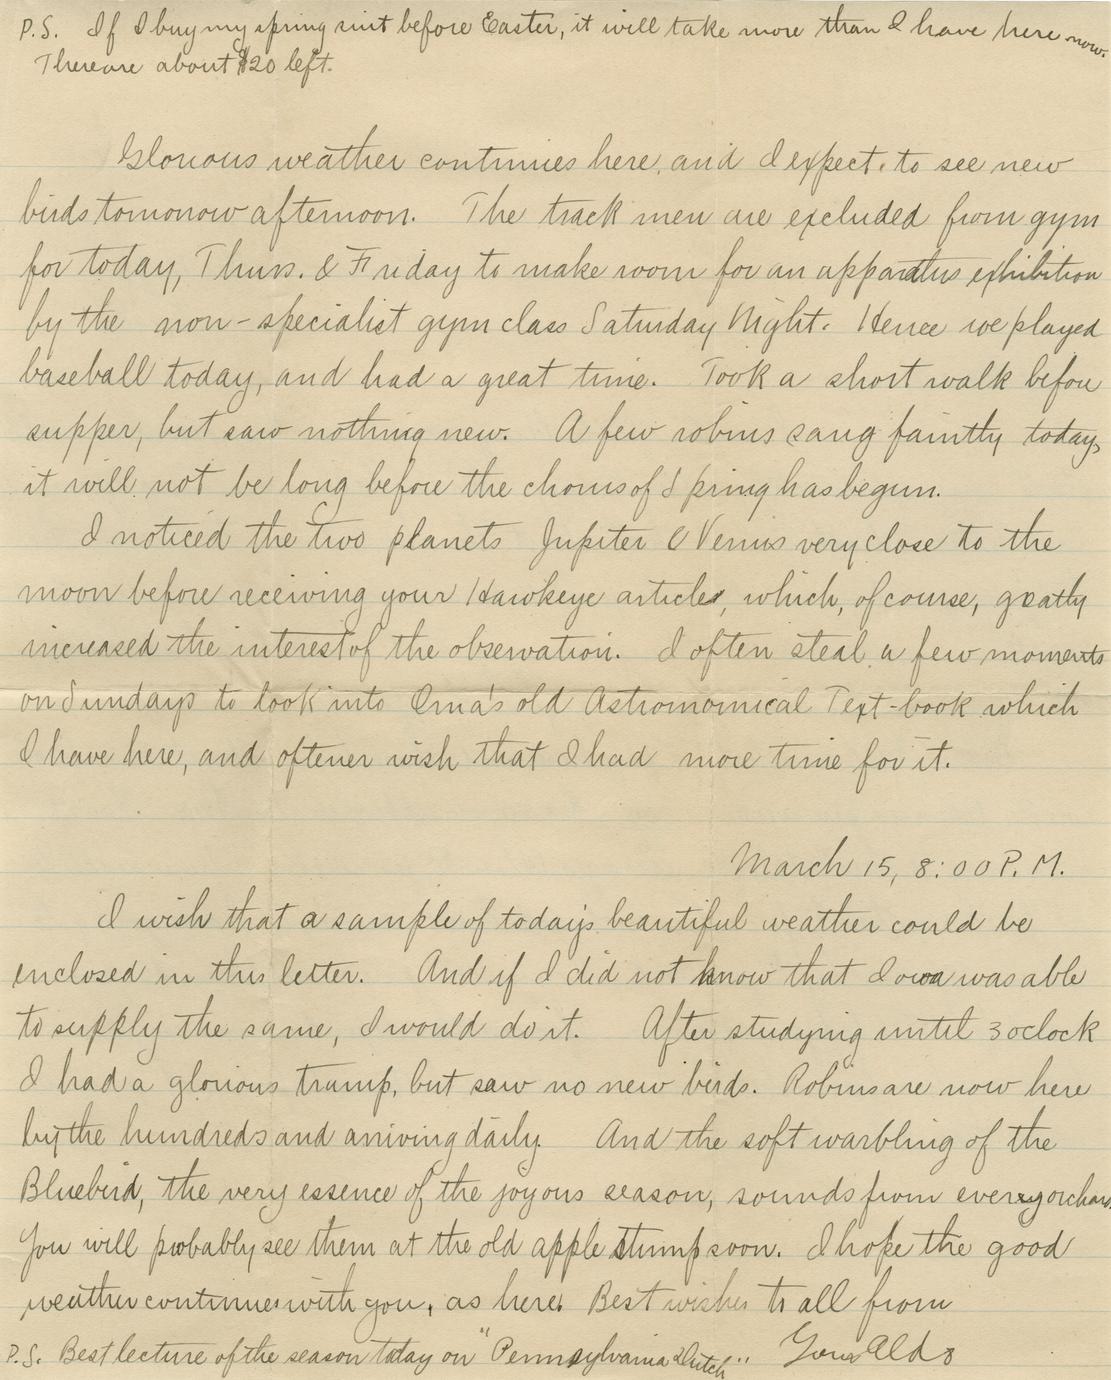 P.S. If I buy my spring suit before Easter, it will take more than I have here now.
There are about $20 left.
Glorious weather continues here, and I expect to see new
birds tomorrow afternoon. The track men are excluded from gym
for today, Thurs. & Friday to make room for an apparatus exhibition
by the non-specialist gym class Saturday Night. Hence we played
baseball today, and had a great time. Took a short walk before
supper, but saw nothing new. A few robins sang faintly today,
it will not be long before the chorus of Spring has begun.
I noticed the two planets Jupiter & Venus very close to the
moon before receiving your Hawkeye articles, which, of course, greatly
increased the interest of the observation. I often steal a few moments
on Sundays to look into Oma's old Astronomical Text-book which
I have here, and oftener wish that I had more time for it.
March 15, 8:00 P.M.
I wish that a sample of todays beautiful weather could be
enclosed in this letter. And if I did not know that Iowa was able
to supply the same, I would do it. After studying until 3 oclock
I had a glorious tramp, but saw no new birds. Robins are now here
by the hundreds and arriving daily. And the soft warbling of the
Bluebird, the very essence of the joyous season, sounds from every orchard.
You will probably see them at the old apple stump soon. I hope the good
weather continues with you, as here. Best wishes to all from
P.S. Best lecture of the season today on "Pennsylvania Dutch" Your Aldo